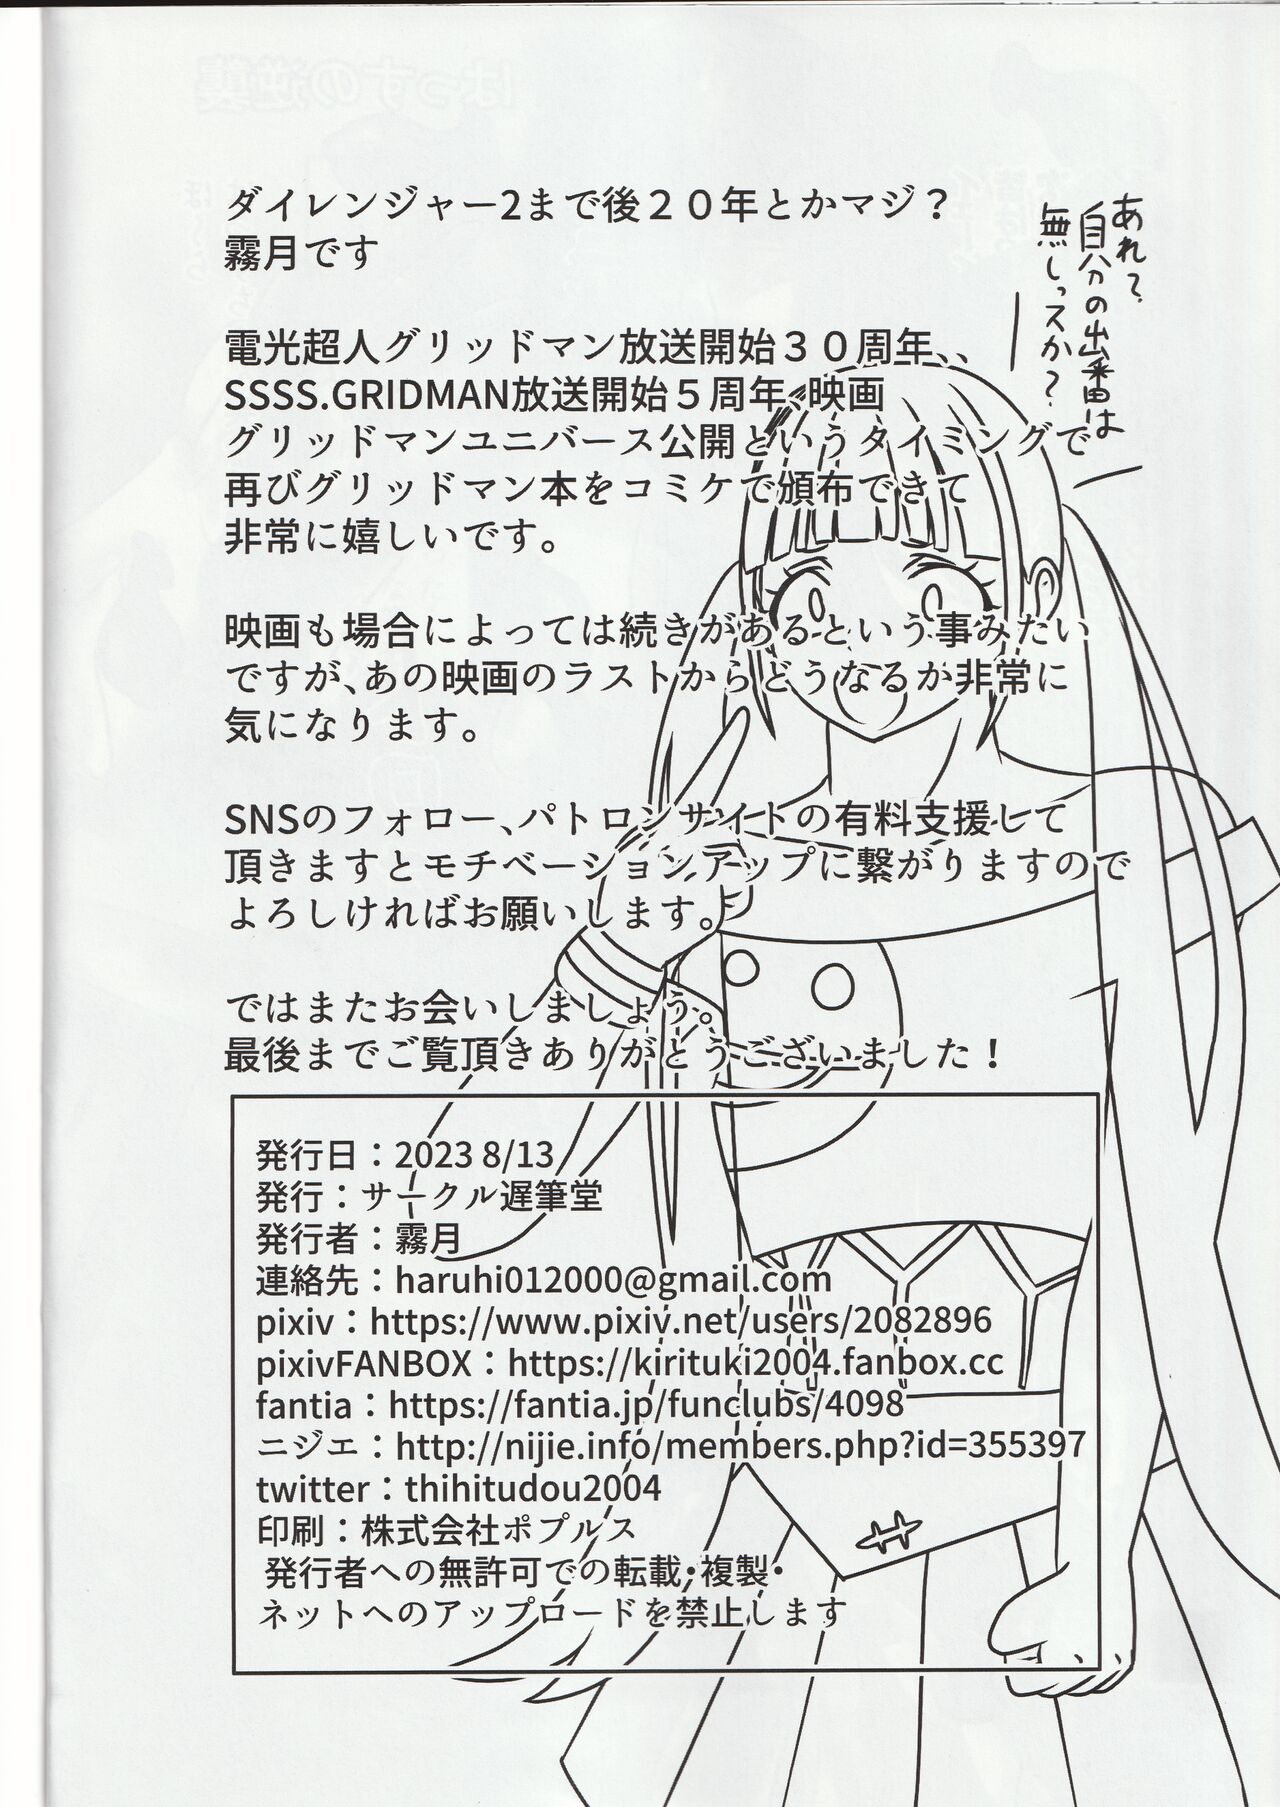 ダイレンジャー2まで後２０年とかマジ？
霧月です
電光超人グリッドマン放送開始３０周年、
SSSS.GRIDMAN放送開始５周年、映画
グリッドマンユニバース公開というタイミングで
再びグリッドマン本をコミケで頒布できて
非常に嬉しいです。
映画も場合によっては続きがあるという事みたい
ですが、あの映画のラストからどうなるか非常に
気になります。
SNSのフォロー、パトロンサイトの有料支援して
頂きますとモチベーションアップに繋がりますので
よろしければお願いします。
ではまたお会いしましょう。
最後までご覧頂きありがとうございました！
あれ？
自分の出番は
無しっスか？
発行日：2023 8/13
発行：サークル遅筆堂
発行者：霧月
連絡先：haruhi012000@gmail.com
pixiv：https://www.pixiv.net/users/2082896
pixivFANBOX：https://kirituki2004.fanbox.cc
fantia：https://fantia.jp/funclubs/4098
ニジエ：http://nijie.info/members.php?id=355397
twitter：thihitudou2004
印刷：株式会社ポプルス
発行者への無許可での転載・複製・
ネットへのアップロードを禁止します